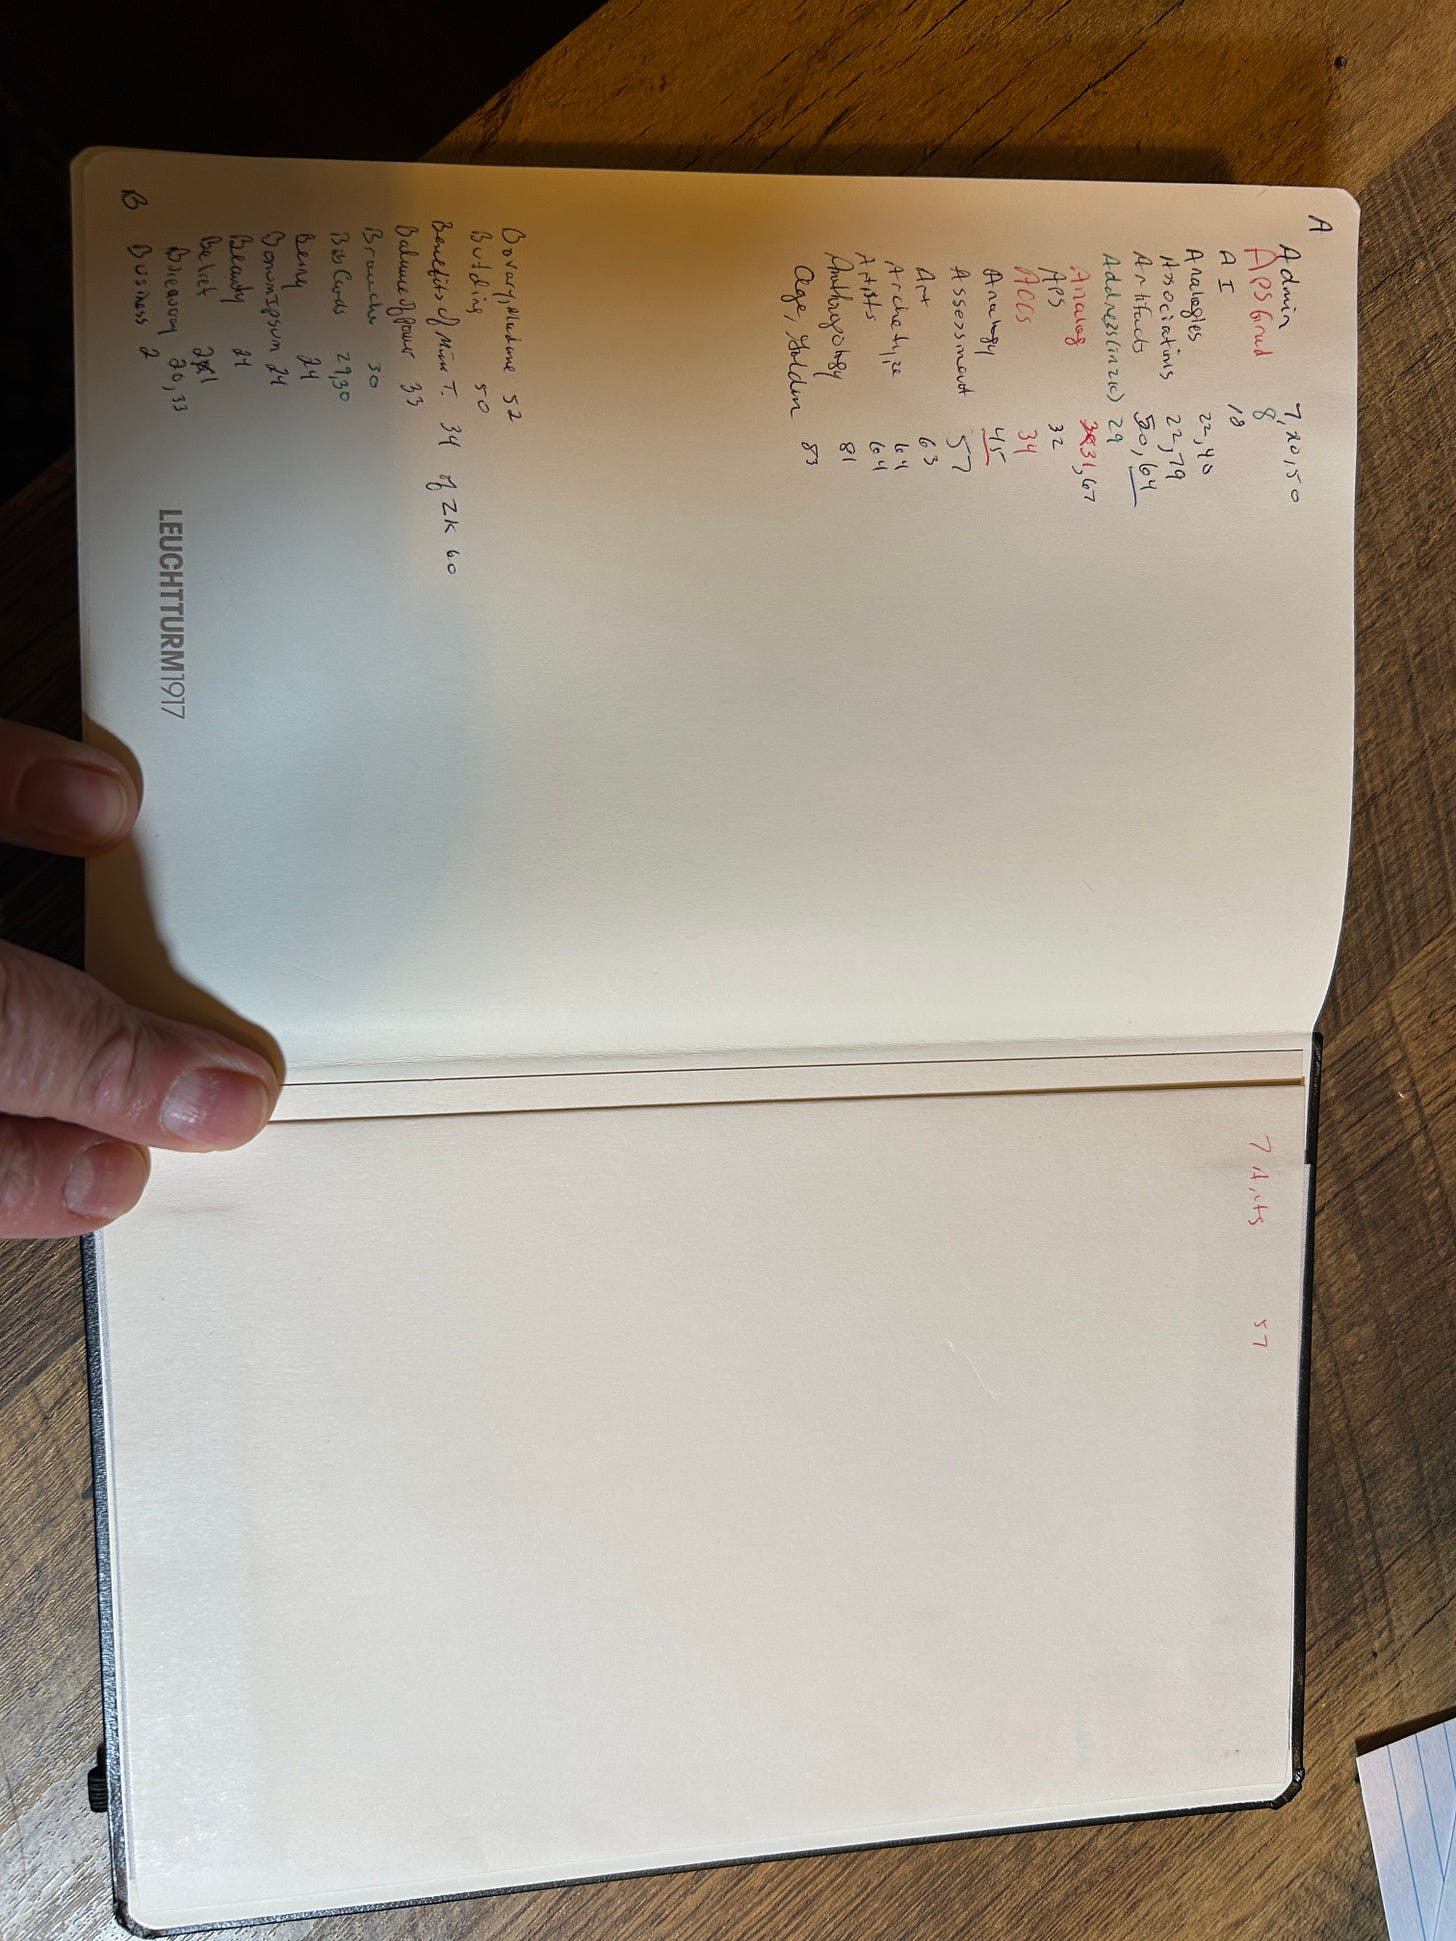 A
Admin 7, 20, 50
APS Grad 8
AI 18
Analogies 22, 40
Associations 22, 79
Artifacts 50, 64
Address (in ZK) 29
Analog 31, 67
APS 32
Accs 34
Analogy 45
Assessment 57
Art 63
Archetype 64
Artists 64
Anthropology 81
Age, Golden 83
Bovary, Madame 52
Building 50
Benefits of Mini T. 34 of ZK 60
Balance of Power 33
Branches 30
Bib Cards 29, 30
Being 24
Bonum Ipsum 24
Beauty 24
Belief
20, 33
Business 2
B
LEUCHTTURM1917
7 Arts 57